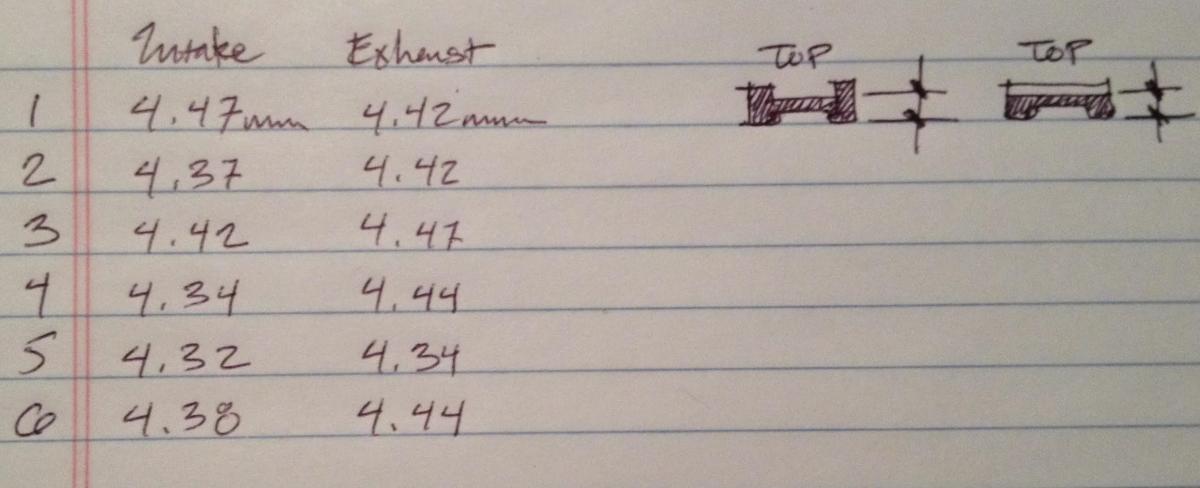 Intake Exhaust TOP TOP
1 4.47mm 4.42mm
2 4.37 4.42
3 4.42 4.47
4 4.34 4.44
5 4.32 4.34
6 4.38 4.44